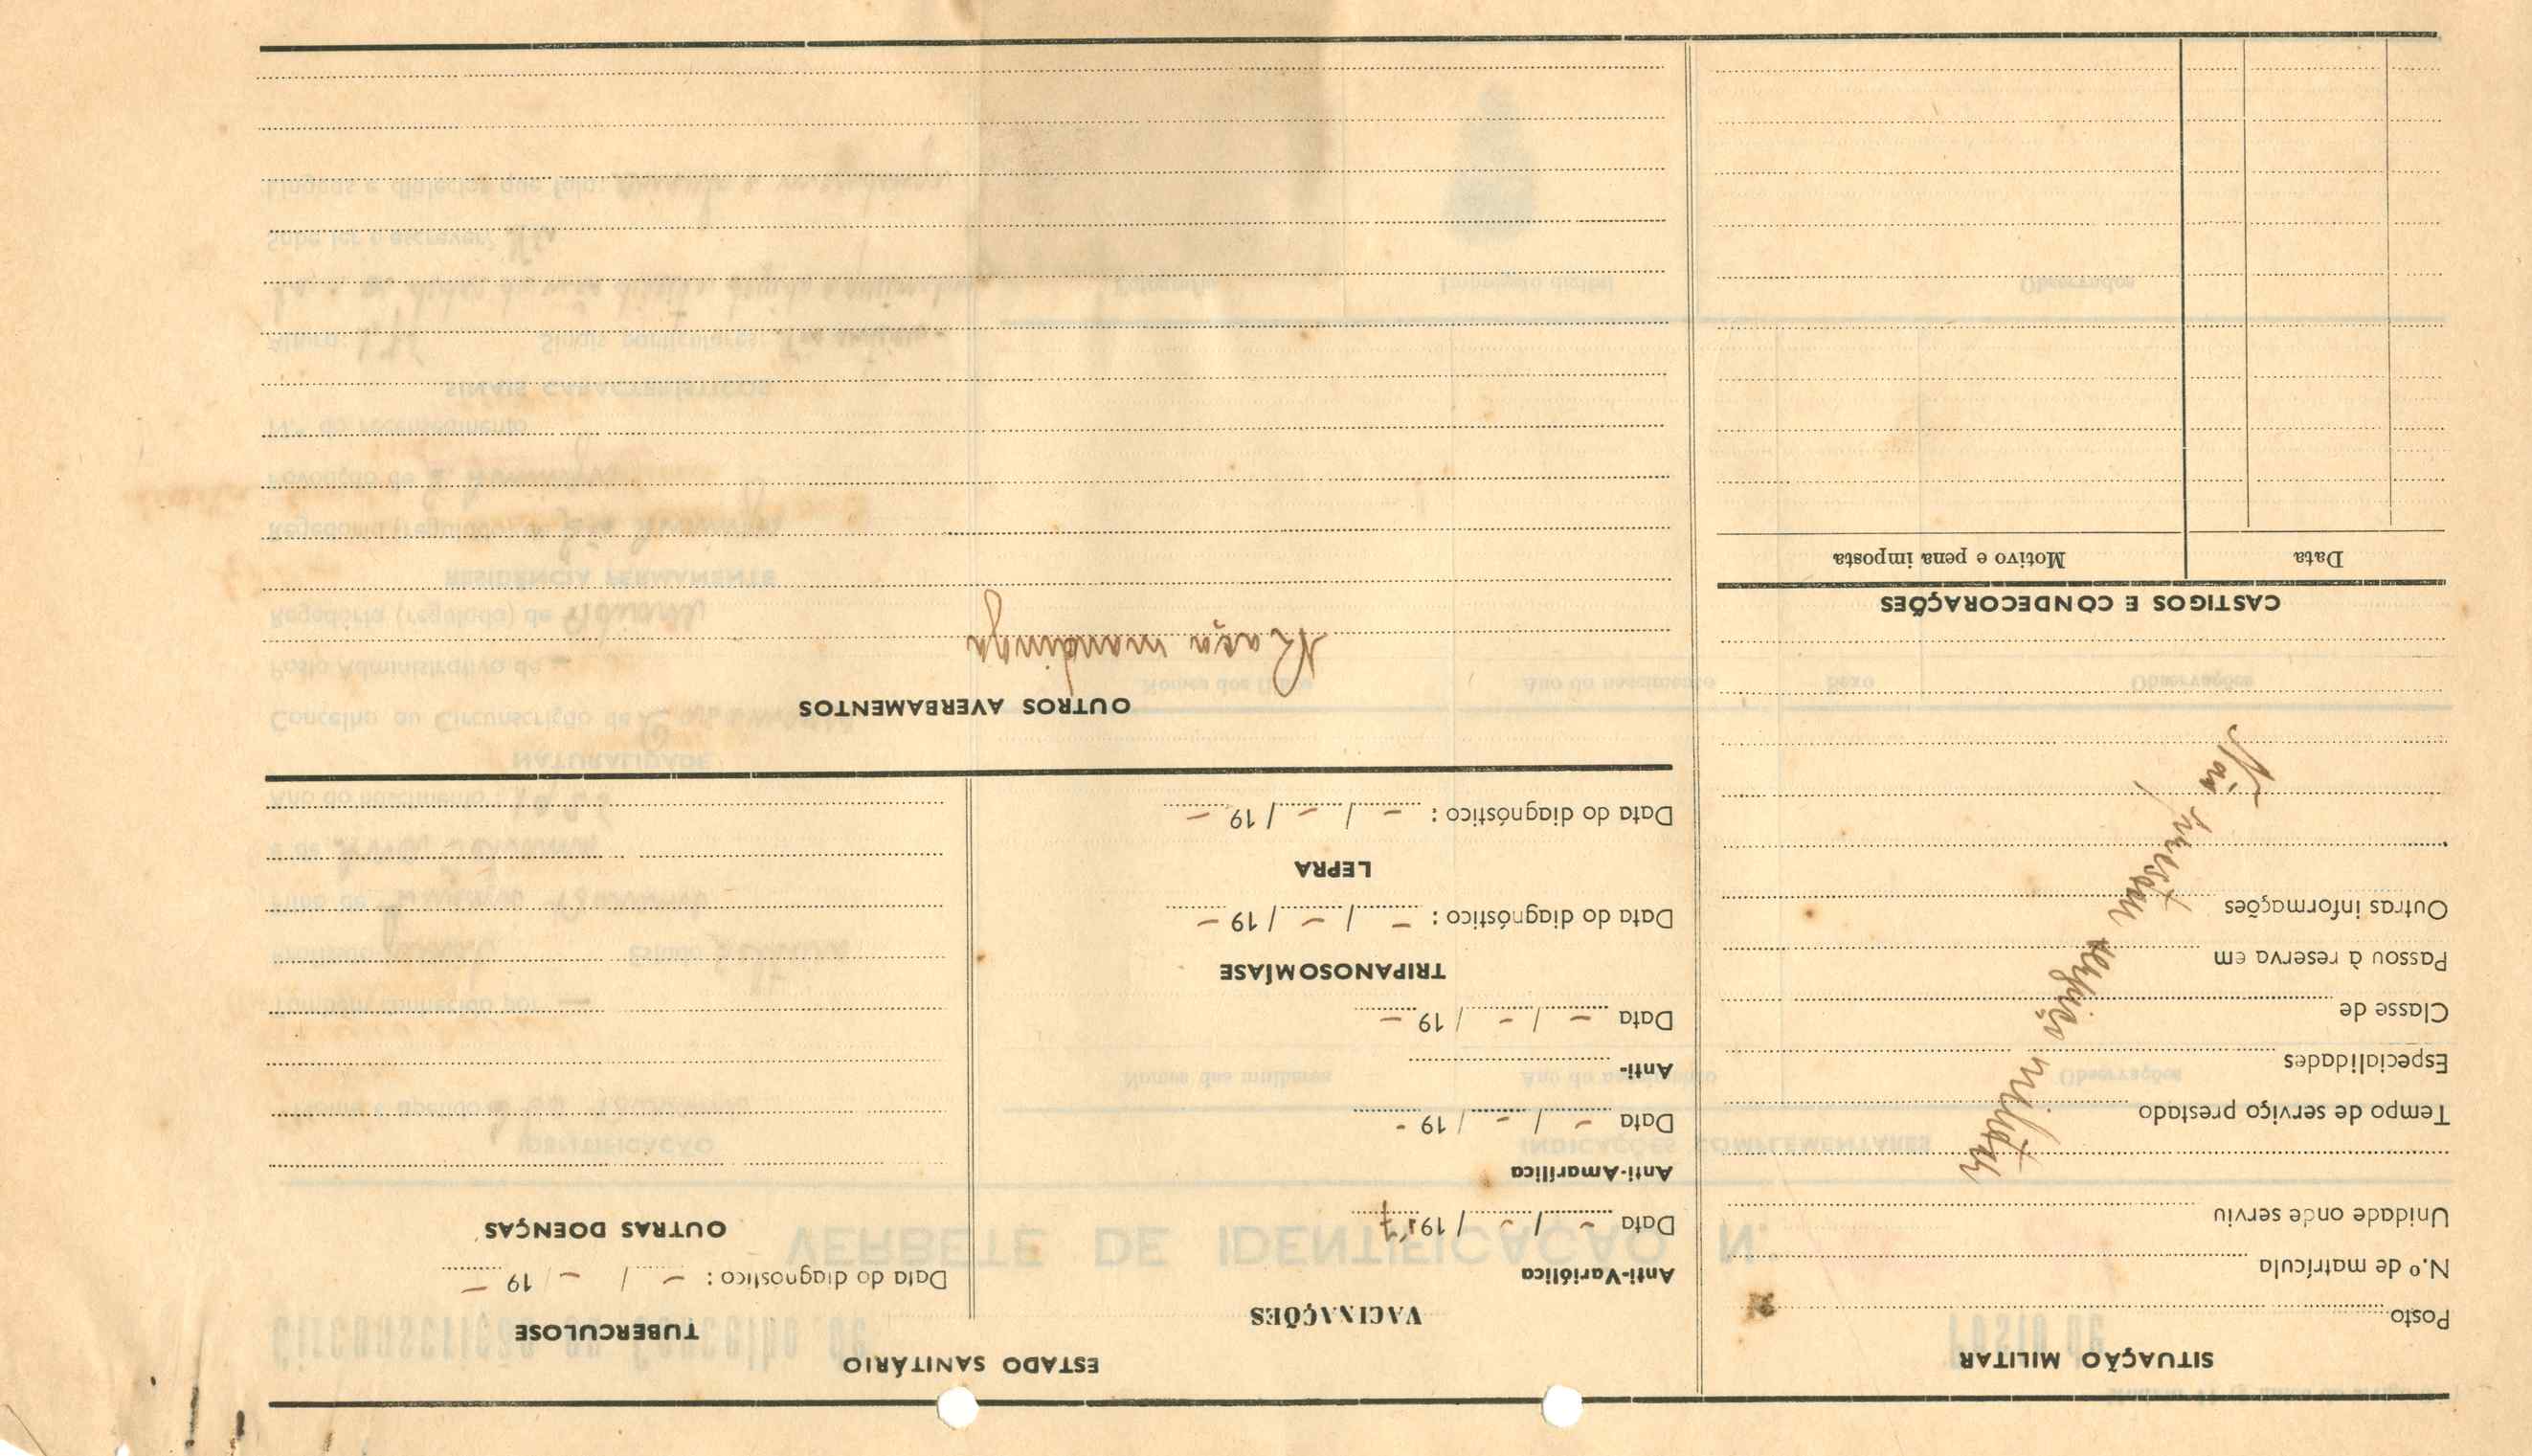 SITUAÇÃO MILITAR
Posto
N.º de matrícula
Unidade onde serviu
Tempo de serviço prestado
Especialidades
Classe de
Passou à reserva em
Outras informações
Não prestou serviço militar
CASTIGOS E CONDECORAÇÕES
Data
Motivo e pena imposta
ESTADO SANITÁRIO
VACINAÇÕES
Anti-Variólica
Data - / - / 1957
Anti-Amarílica
Data - / - / 19 -
Anti-
Data - / - / 19 -
TRIPANOSOMÍASE
Data do diagnóstico : - / - / 19 -
LEPRA
Data do diagnóstico : - / - / 19 -
TUBERCULOSE
Data do diagnostico : - / - / 19 -
OUTRAS DOENÇAS
OUTROS AVERBAMENTOS
Raça mandinga